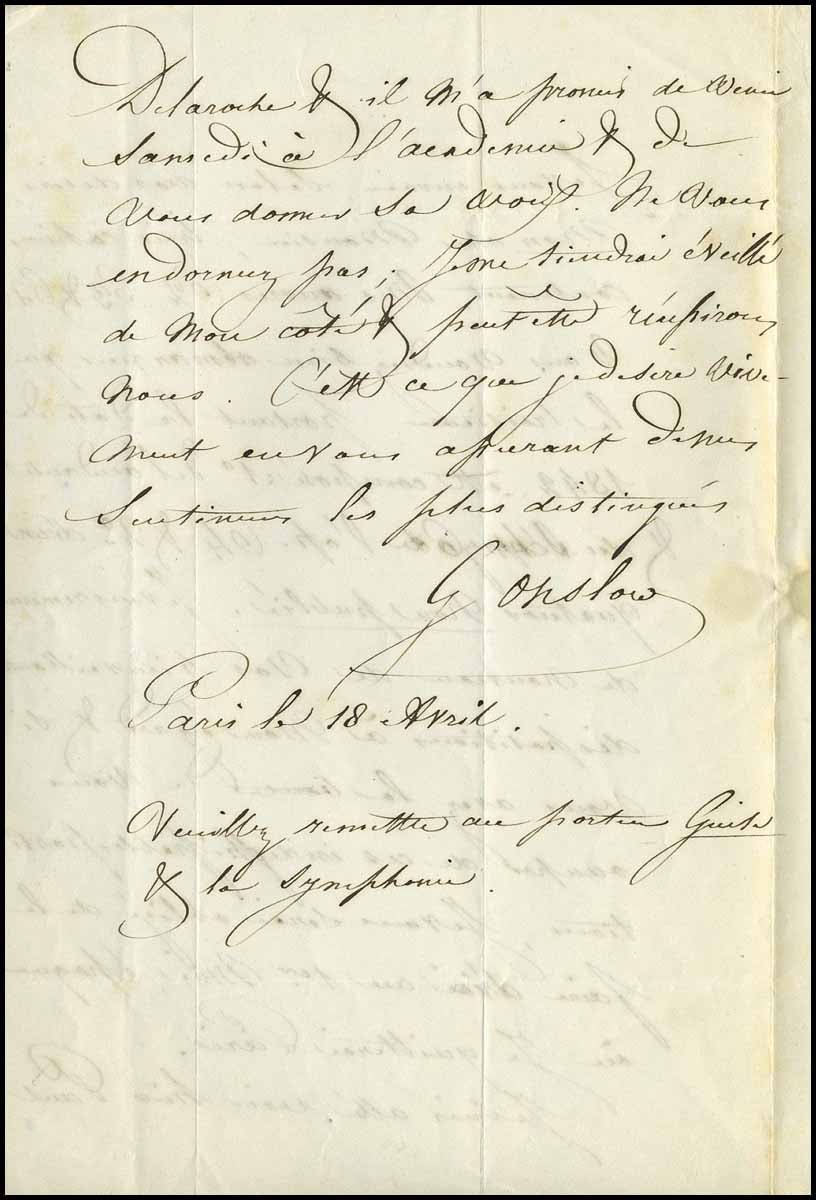 Delaroche & il m'a promis de venir
Samedi à l'academie & de
vous donner sa voix. Ne vous
endormez pas; Je me tiendrai éveillé
de mon côté & peut être réussirons
nous. C'est ce que je desire vive-
ment en vous assurant de mes
sentimens les plus distingués
G Onslow
Paris le 18 Avril.
Veuillez remettre au porteur Guise
& la Symphonie.